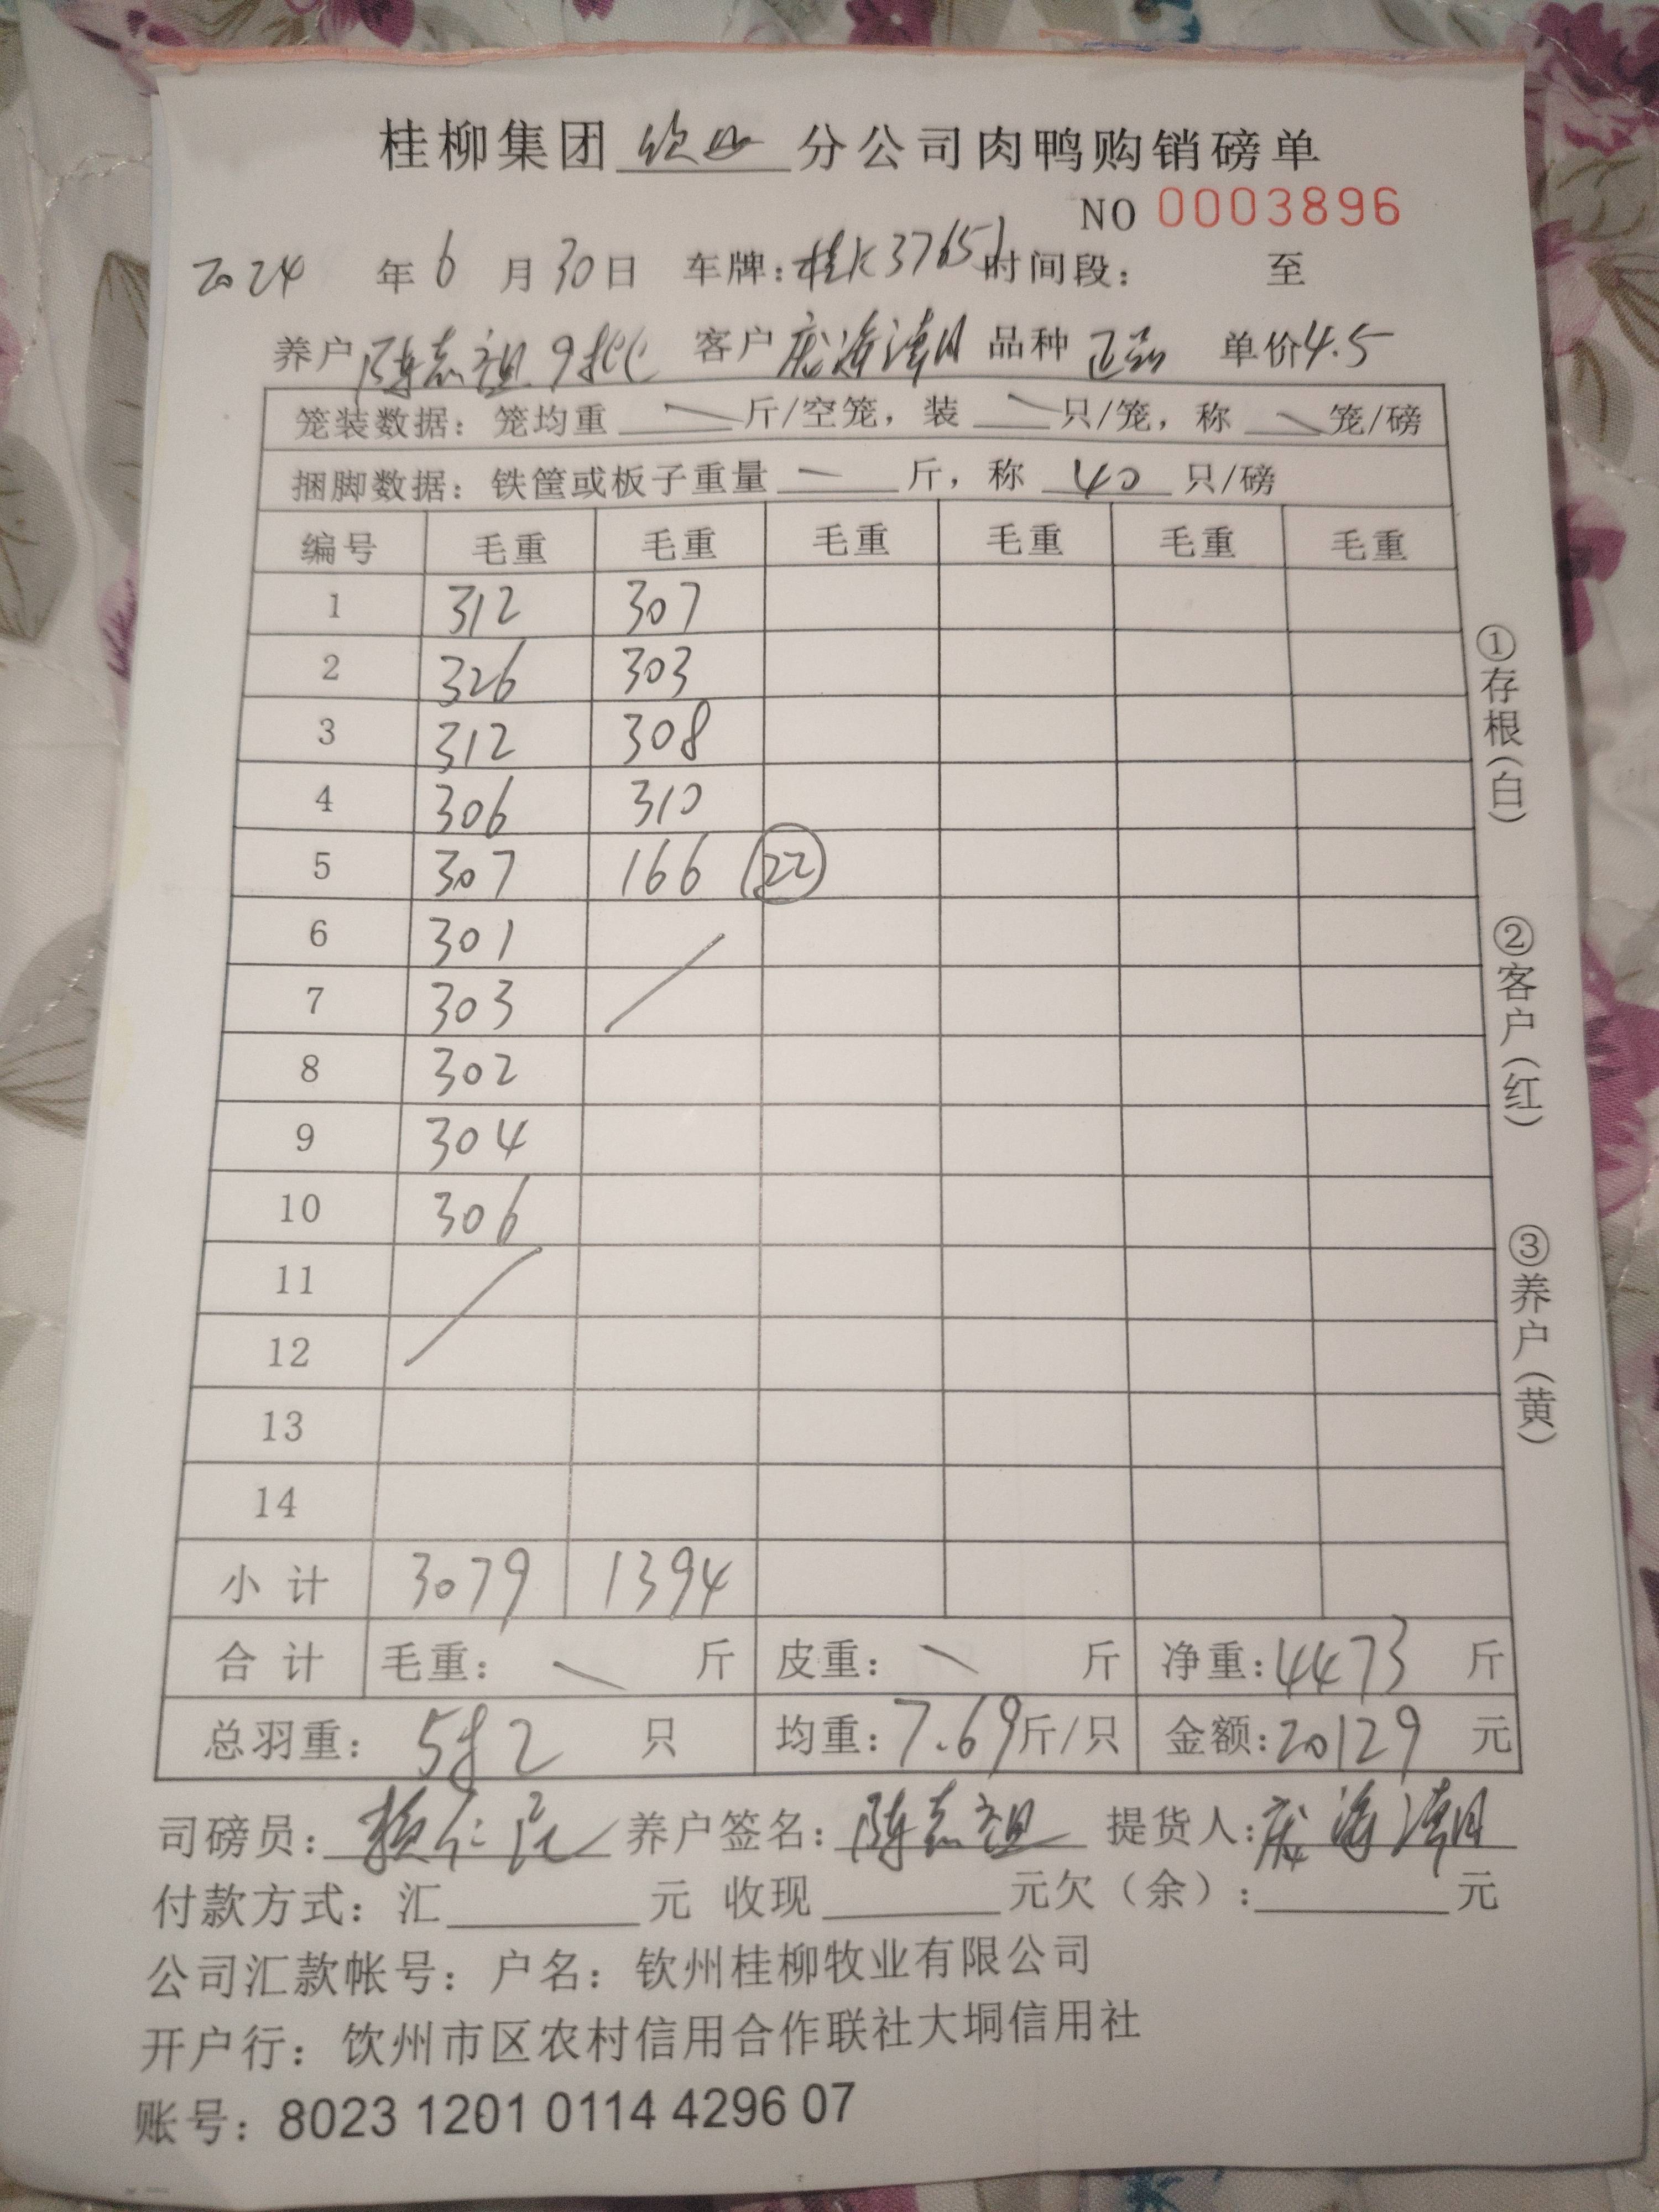 桂柳集团钦州分公司肉鸭购销磅单
NO 0003896
2024年6月30日 车牌:桂K37651时间段: 至
养户陈志祖9批 客户庞海潮 品种正品 单价4.5
笼装数据:笼均重 斤/空笼,装 只/笼,称 笼/磅
捆脚数据:铁筐或板子重量 斤,称 40 只/磅
编号 毛重 毛重 毛重 毛重 毛重 毛重
1 312 307
2 326 303
3 312 308
4 306 310
5 307 166 22
6 301
7 303
8 302
9 304
10 306
11
12
13
14
小计 3079 1394
合计 毛重: 斤 皮重: 斤 净重:4473 斤
总羽重: 582 只 均重:7.69斤/只 金额:20129 元
司磅员: 养户签名:陈志祖 提货人:庞海潮
付款方式:汇 元 收现 元欠(余): 元
公司汇款帐号:户名:钦州桂柳牧业有限公司
开户行:钦州市区农村信用合作联社大垌信用社
账号:8023 1201 0114 4296 07
①存根(白)
②客户(红)
③养户(黄)